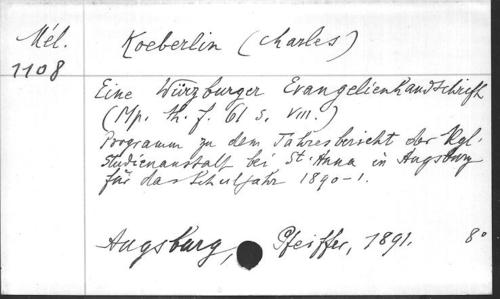 Mél.
1108
Koeberlin (Charles)
Eine Würzburger Evangelienhandschrift
(Mp. th. f. 61 s. VIII.)
Programm zu dem Jahresbericht der Kgl.
Studienanstalt bei St. Anna in Augsburg
für das Schuljahr 1890-1.
Augsburg, Pfeiffer, 1891. 8°